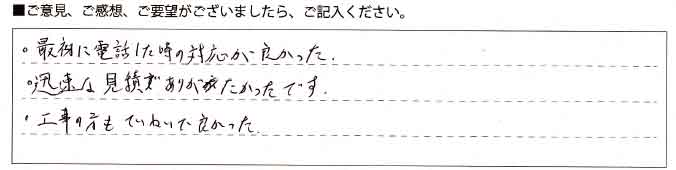 ■ご意見、ご感想、ご要望がございましたら、ご記入ください。
。最初に電話した時の対応が良かった.
。迅速な見積がありがたかったです.
・工事の方もていねいで良かった.